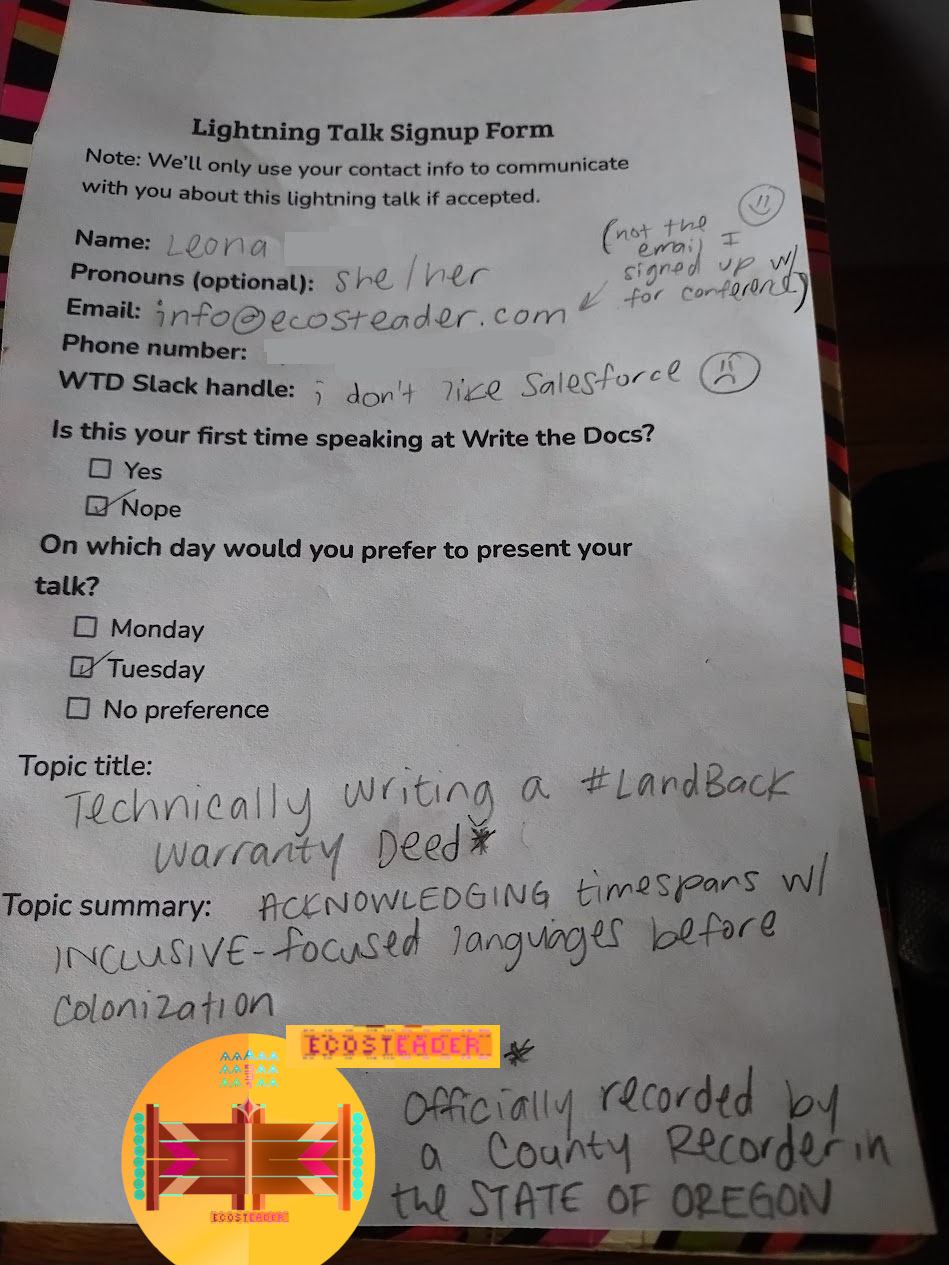 Lightning Talk Signup Form
Note: We'll only use your contact info to communicate
with you about this lightning talk if accepted.
Name: Leona
Pronouns (optional): she/her
(not the
email I
signed up w/
for conference)
Email: info@ecosteader.com
Phone number:
WTD Slack handle: i don't like Salesforce
Is this your first time speaking at Write the Docs?
Yes
Nope
On which day would you prefer to present your
talk?
Monday
Tuesday
No preference
Topic title:
Technically writing a #LandBack
Warranty Deed*
Topic summary: ACKNOWLEDGING timespans w/
INCLUSIVE-focused languages before
Colonization
ECOSTEADER
*
Officially recorded by
a County Recorder in
the STATE OF OREGON
ECOSTEADER